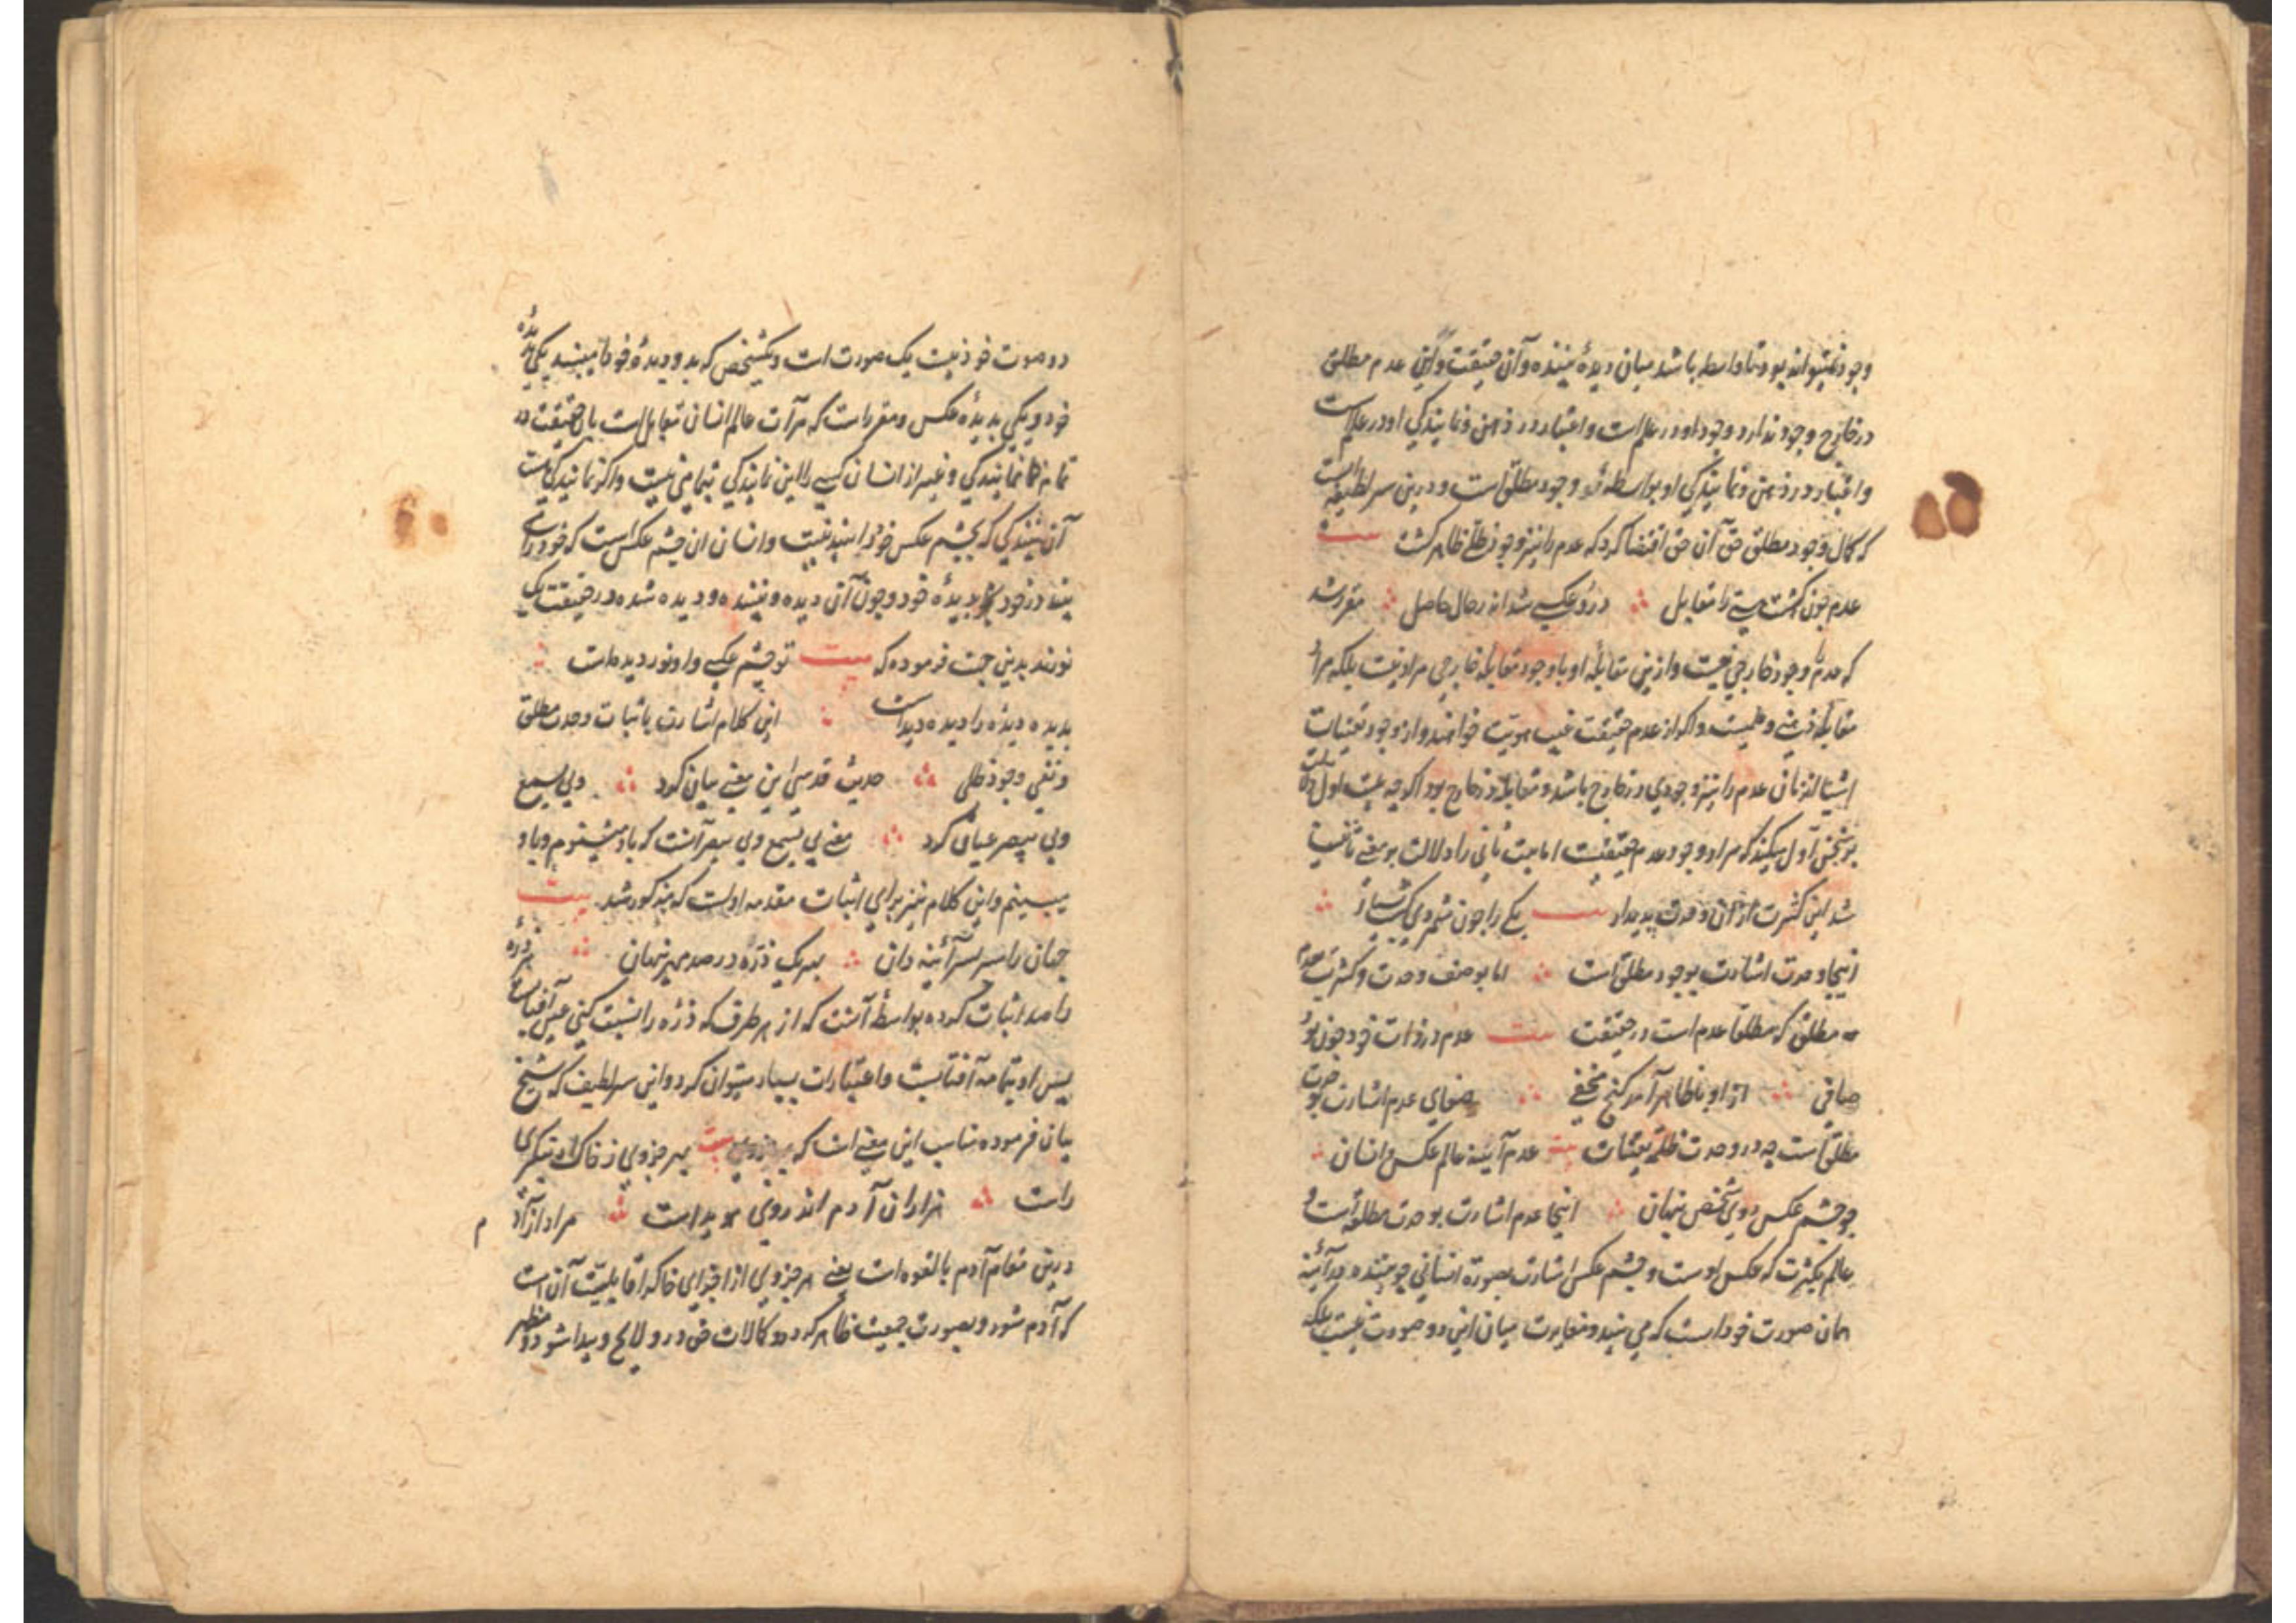 وجود نمیتواند بود تا واسطه باشد میان دیدهٔ بیننده و آن حقیقت و این عدم مطلق
در خارج وجود ندارد وجود او در علم است و اعتبار در ذهن و نمایندکی او در علم است
و اعتبار در ذهن و نمایندکی او بواسطه وجود مطلق است و درین سر لطیفه است
که کمال وجود مطلق حق آن حق اقتضا کرد که عدم را نیز وجود ظلی ظاهر کشت بیت
عدم چون کشت هستی را مقابل ؞ درو عکسی شد اندر حال حاصل ؞ مقرر شد
که عدم را وجود خارجی نیست و ازین مقابلهٔ او با وجود مقابلهٔ خارجی مراد نیست بلکه مراد
مقابلهٔ ذهنی و علمیست و اکر از عدم حقیقت غیب هویت خواهند و از وجود تعینات
اشیا لزمان عدم را نیز وجودی در خارج باشد و مقابله در خارج بود اکرچه بیت اول دلالت
بر شخص اول میکند که مراد وجود عدم حقیقیست اما بیت ثانی را دلالت بر معنی ثانیست
شد این کثرت از آن وحدت پدیدار بیت یکی را چون شمردی کشت بسیار ؞
اینجا وحدت اشارت بوجود مطلق است ؞ اما بوصف وحدت و کثرت عدم
مطلق که مطلقا عدم است در حقیقت بیت عدم در ذات خود چون بود
صافی ؞ از او با ظاهر آمد کنج مخفی ؞ صفای عدم اشارت بوحدت
مطلق است چه در وحدت ظلمه تعینات بیت عدم آیینه عالم عکس و انسان ؞
چو چشم عکس در وی شخص پنهان ؞ اینجا عدم اشارت بوحدت مطلقه است و
عالم بکثرت که عکس اوست و چشم عکس اشارت بصورة انسانی چو بیننده در آئینه
همان صورت خود است که می بیند و مغایرت میان این دو صورت نیست بلکه
دو صوت خود نیست یک صورت است و یک شخص که بدو دیدهٔ خود را میبیند یکی بدیدهٔ
خود و یکی بدیدهٔ عکس و مقرر است که مرآت عالم انسان مقابل است بان حقیقت در
تمام نمایندکی و غیر از انسان کسی را این نمایندکی بتمامی نیست و اکر نمایندکی هست
آن بینندکی که بچشم عکس خود را بیند نیست و انسان ان چشم عکس است که خود را
بیند در خود بدیدهٔ خود و چون آن دیده و بیننده و دیده شده در حقیقت یک
نورند بدین جهت فرموده که بیت تو چشم عکسی و او نور دیده است ؞
بدیده دیده را دیده دیداست ؞ این کلام اشارت باثبات وحدت مطلق
و نفی وجود ظلی ؞ حدیث قدسی این معنی بیان کرد ؞ وبی یسمع
وبی یبصر عیان کرد ؞ معنی بی یسمع وبی یبصر آنست که باو میشنوم و باو
میبینم و این کلام نیز برای اثبات مقدمه اولست که مذکور شد بیت
جهان را سر بسر آئینه دان ؞ بهر یک ذره در صد مهر پنهان ؞ هر ذره
را صد اثبات کرده بواسطهٔ آنست که از هر طرف که ذره را نسبت کنی عین آفتابست
پس او بتمامه آفتابست و اعتبارات بسیار میتوان کرد و این سر لطیف که شیخ
بیان فرموده مناسب این معنی است که بیت بهر جزوی ز خاک ار بنکری
راست ؞ هزاران آدم اندر وی هویداست ؞ مراد از آدم
درین مقام آدم بالقوه است یعنی هر جزوی از اجزای خاک را قابلیت آن است
که آدم شود و بصورت جمعیت ظاهر کردد و کمالات حق در و لایح و پیدا شود و مظهر